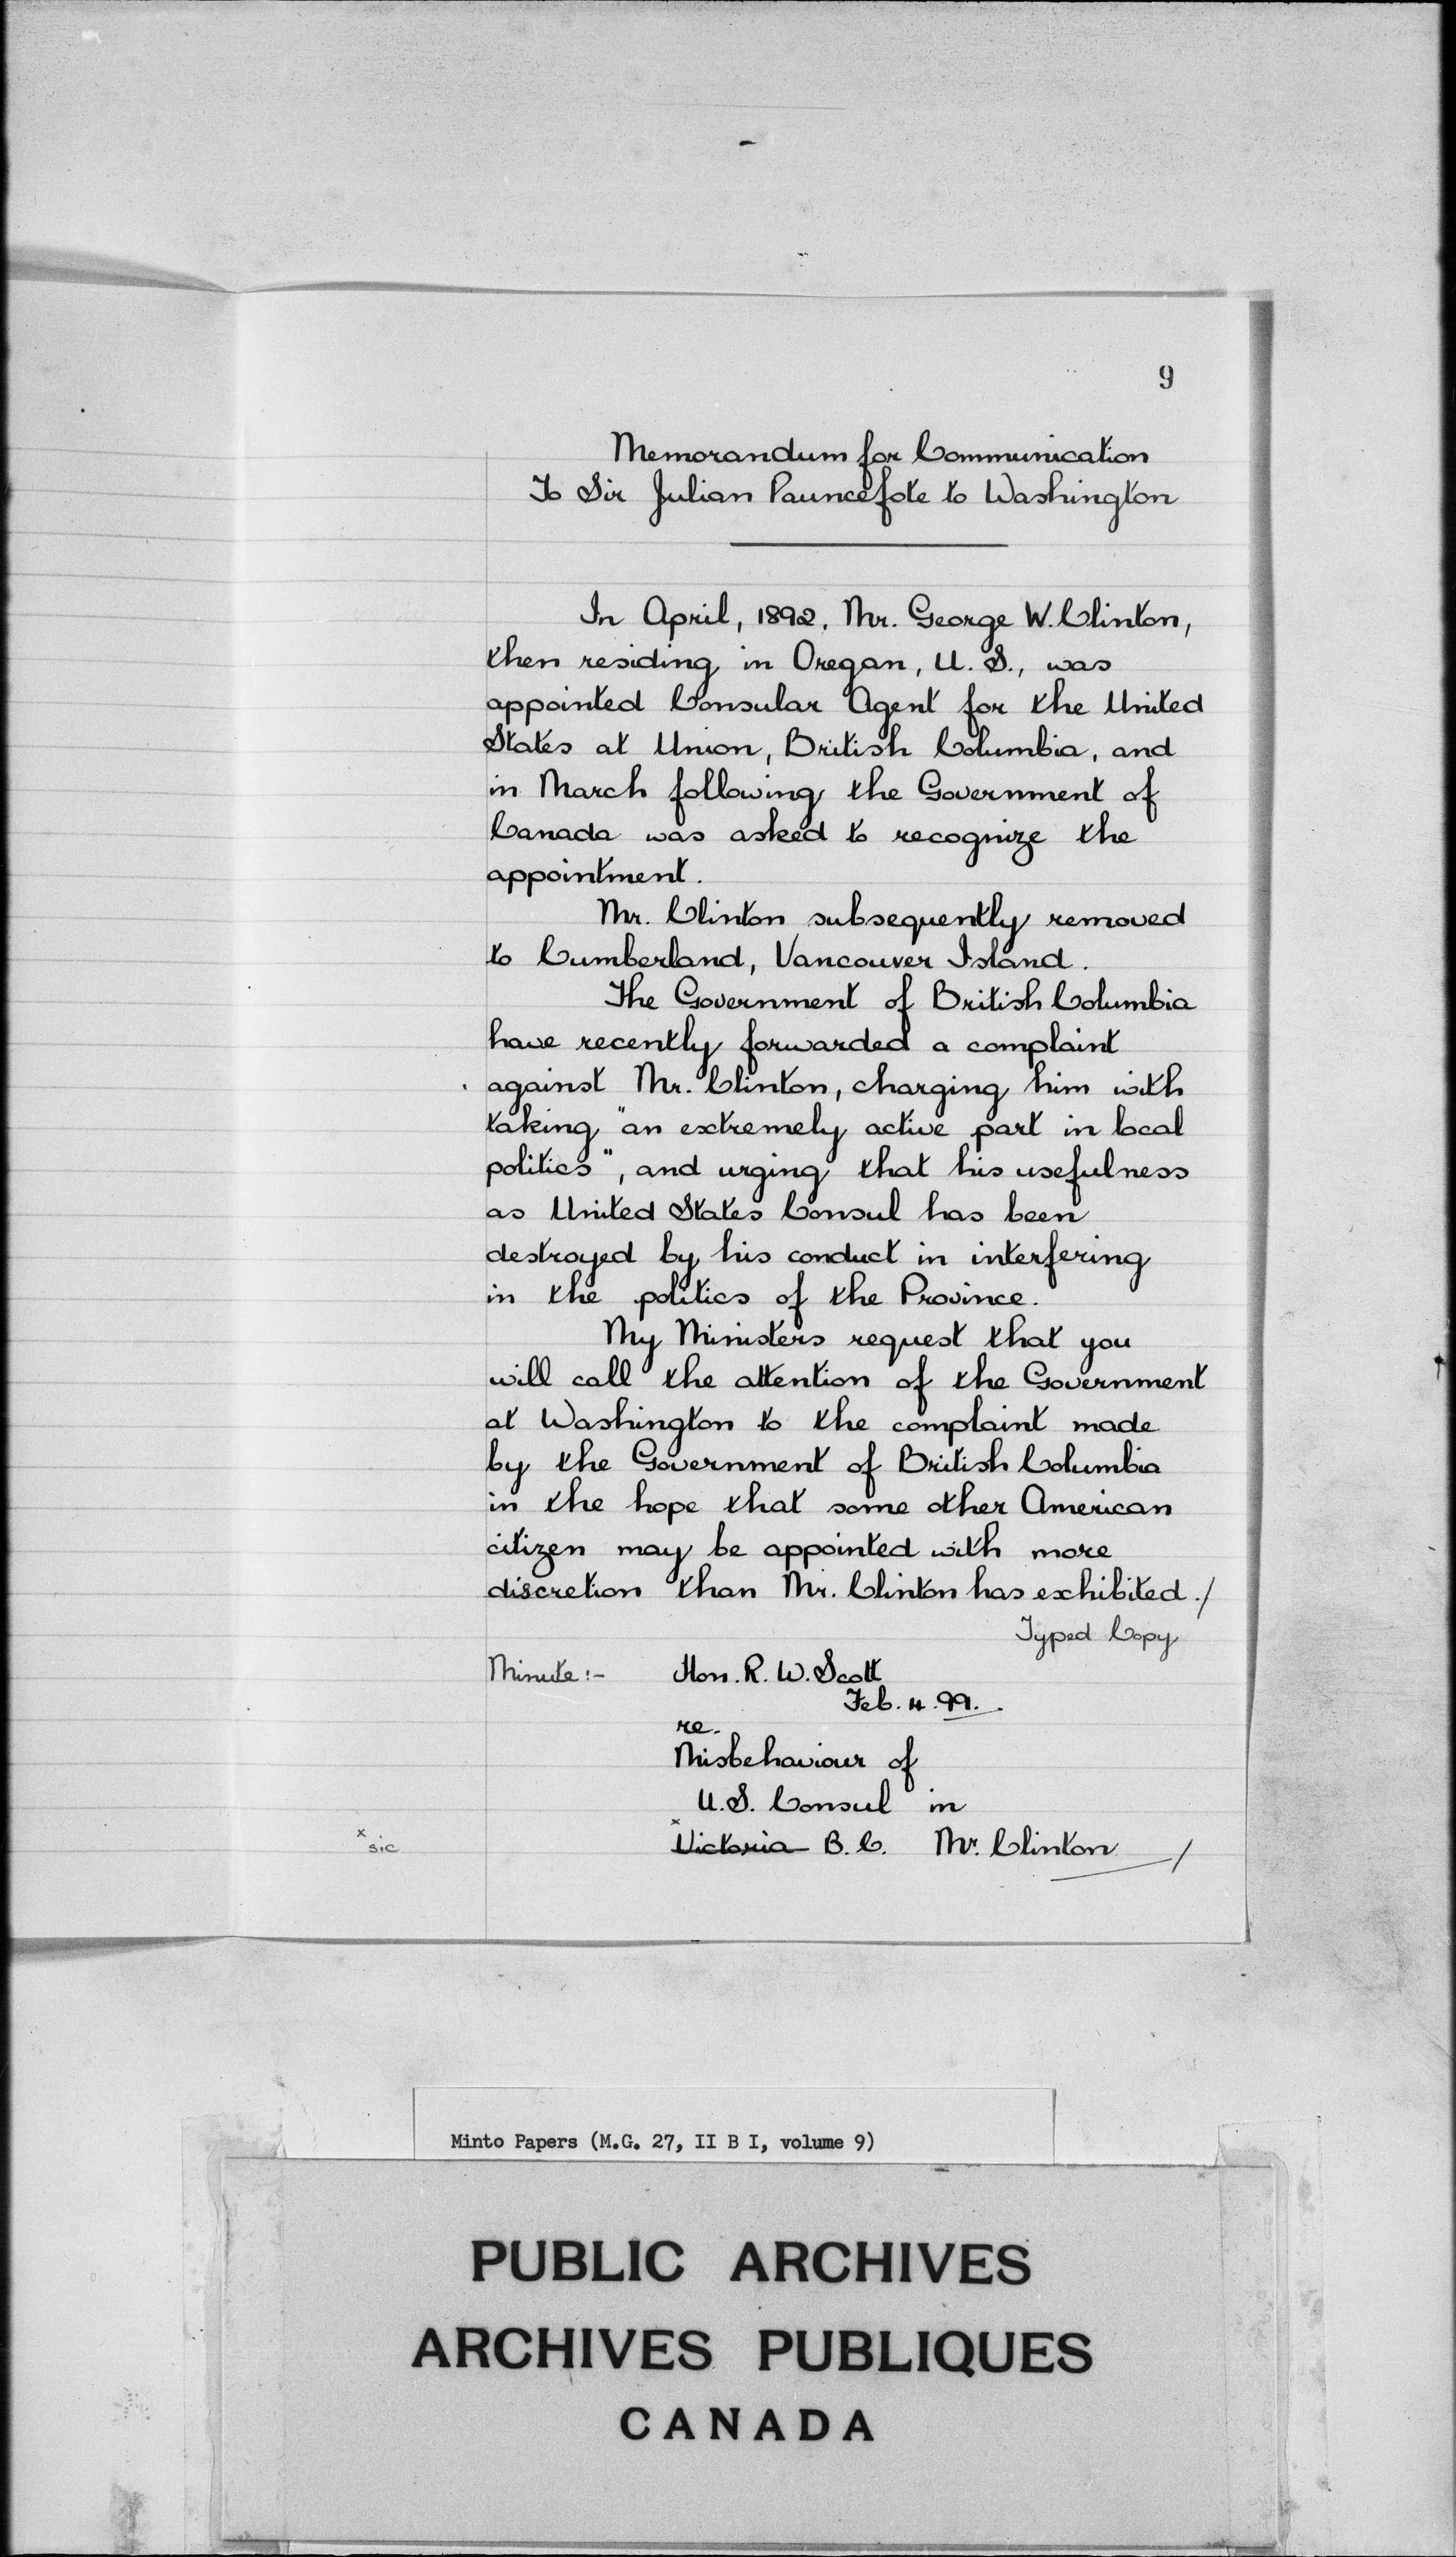 9
Memorandum for Communication
To Sir Julian Pauncefote to Washington
In April, 1892, Mr. George W. Clinton,
then residing in Oregan, U. S., was
appointed Consular Agent for the United
States at Union, British Columbia, and
in March following the Government of
Canada was asked to recognize the
appointment.
Mr. Clinton subsequently removed
to Cumberland, Vancouver Island.
The Government of British Columbia
have recently forwarded a complaint
against Mr. Clinton, charging him with
taking "an extremely active part in local
politics", and urging that his usefulness
as United States Consul has been
destroyed by his conduct in interfering
in the politics of the Province.
My Ministers request that you
will call the attention of the Government
at Washington to the complaint made
by the Government of British Columbia
in the hope that some other American
citizen may be appointed with more
discretion than Mr. Clinton has exhibited./
Typed Copy
Minute:- Hon. R. W. Scott
Feb. 4. 99.
re.
Misbehaviour of
U.S. Consul in
x sic x Victoria B.C. Mr. Clinton /
Minto Papers (M.G. 27, II B I, volume 9)
PUBLIC ARCHIVES
ARCHIVES PUBLIQUES
CANADA